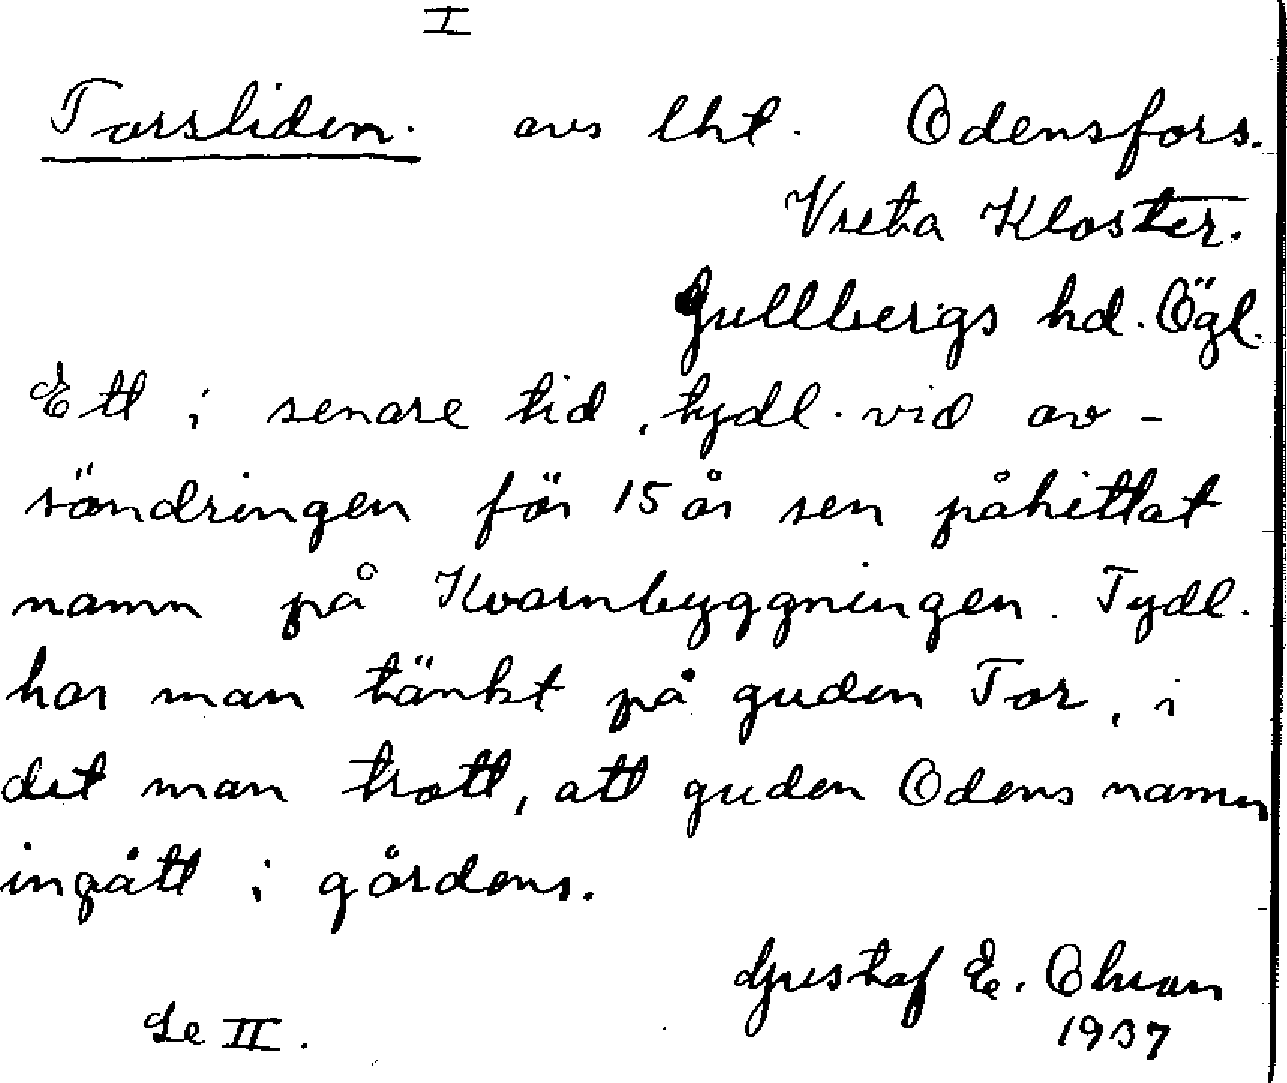 I
Torsliden. avs lht. Odensfors.
Vreta Kloster.
Gullbergs hd. Ögl.
Ett i senare tid, tydl. vid av-
söndringen för 15 år sen påhittat
namn på Kvarnbyggningen. Tydl.
har man tänkt på guden Tor, i
det man trott, att guden Odens namn
ingått i gårdens.
Gustaf E. Ohman
Se II. 1937